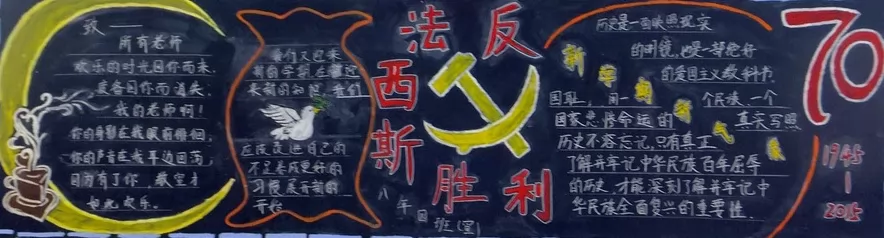 致——
所有老师
欢乐的时光因你而来.
疲备因你而消失.
我的老师啊!
你的身影在我眼前徘徊,
你的声音在我耳边回荡,
因为有了你,教室才
如此欢乐.
我们又迎来
新的学期,在
来新的知识,我们
应该改进自己的
不足养成更好的
习惯展开新的
开始
反
法
西
斯
胜利
八年四班(宣)
历史是一面映照现实
的明镜,也是一部绝好
的爱国主义教科书.
新学期新气象
国耻,同一个民族,一个
国家悲怆命运的真实写照
历史不容忘记,只有真正
了解并牢记中华民族百年屈辱
的历史,才能深刻了解并牢记中
华民族全面复兴的重要性.
70
1945
|
2015